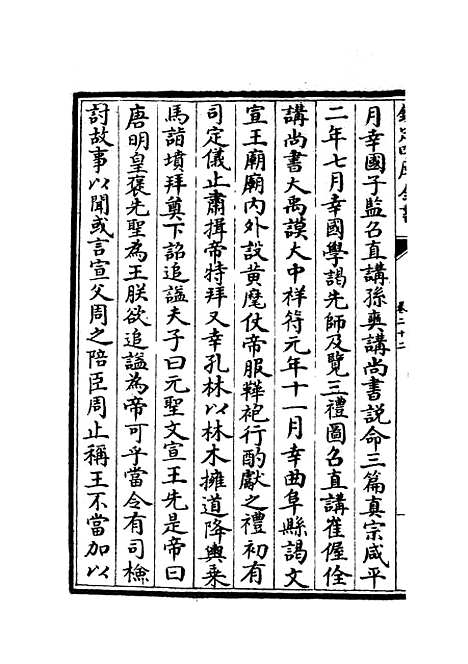 欽定四庫全書
卷二十二
月幸國子監召直講孫奭講尚書説命三篇真宗咸平
二年七月幸國學謁先師及覽三禮圖召直講崔偓佺
講尚書大禹謨大中祥符元年十一月幸曲阜縣謁文
宣王廟廟内外設黄麾仗帝服鞾袍行酌獻之禮初有
司定儀止肅揖帝特拜又幸孔林以林木擁道降輿乗
馬詣墳拜奠下詔追諡夫子曰元聖文宣王先是帝曰
唐明皇褒先聖為王朕欲追諡為帝可乎當令有司檢
討故事以聞或言宣父周之陪臣周止稱王不當加以